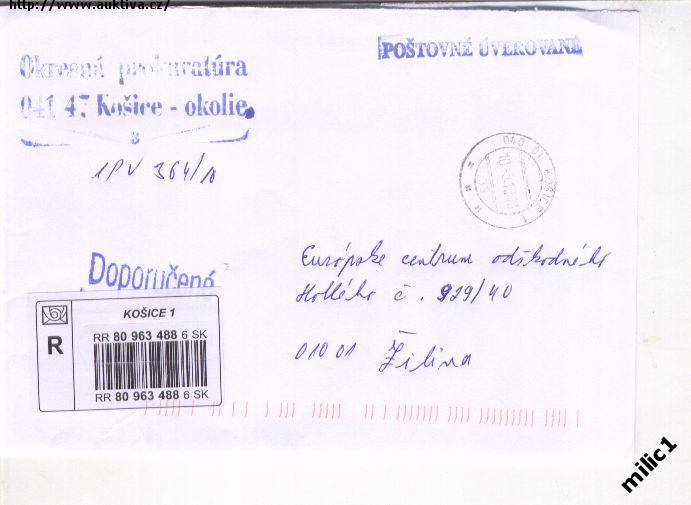 http://www.auktiva.cz/
Okresná prokuratúra
041 47 Košice - okolie
3
1PV 364/10
POŠTOVNÉ ÚVEROVANÉ
040 01 KOŠICE 1
Doporučená
Európske centrum odškodného
Hollého č. 929/40
010 01 Žilina
KOŠICE 1
R
RR 80 963 488 6 SK
RR 80 963 488 6 SK
milic1